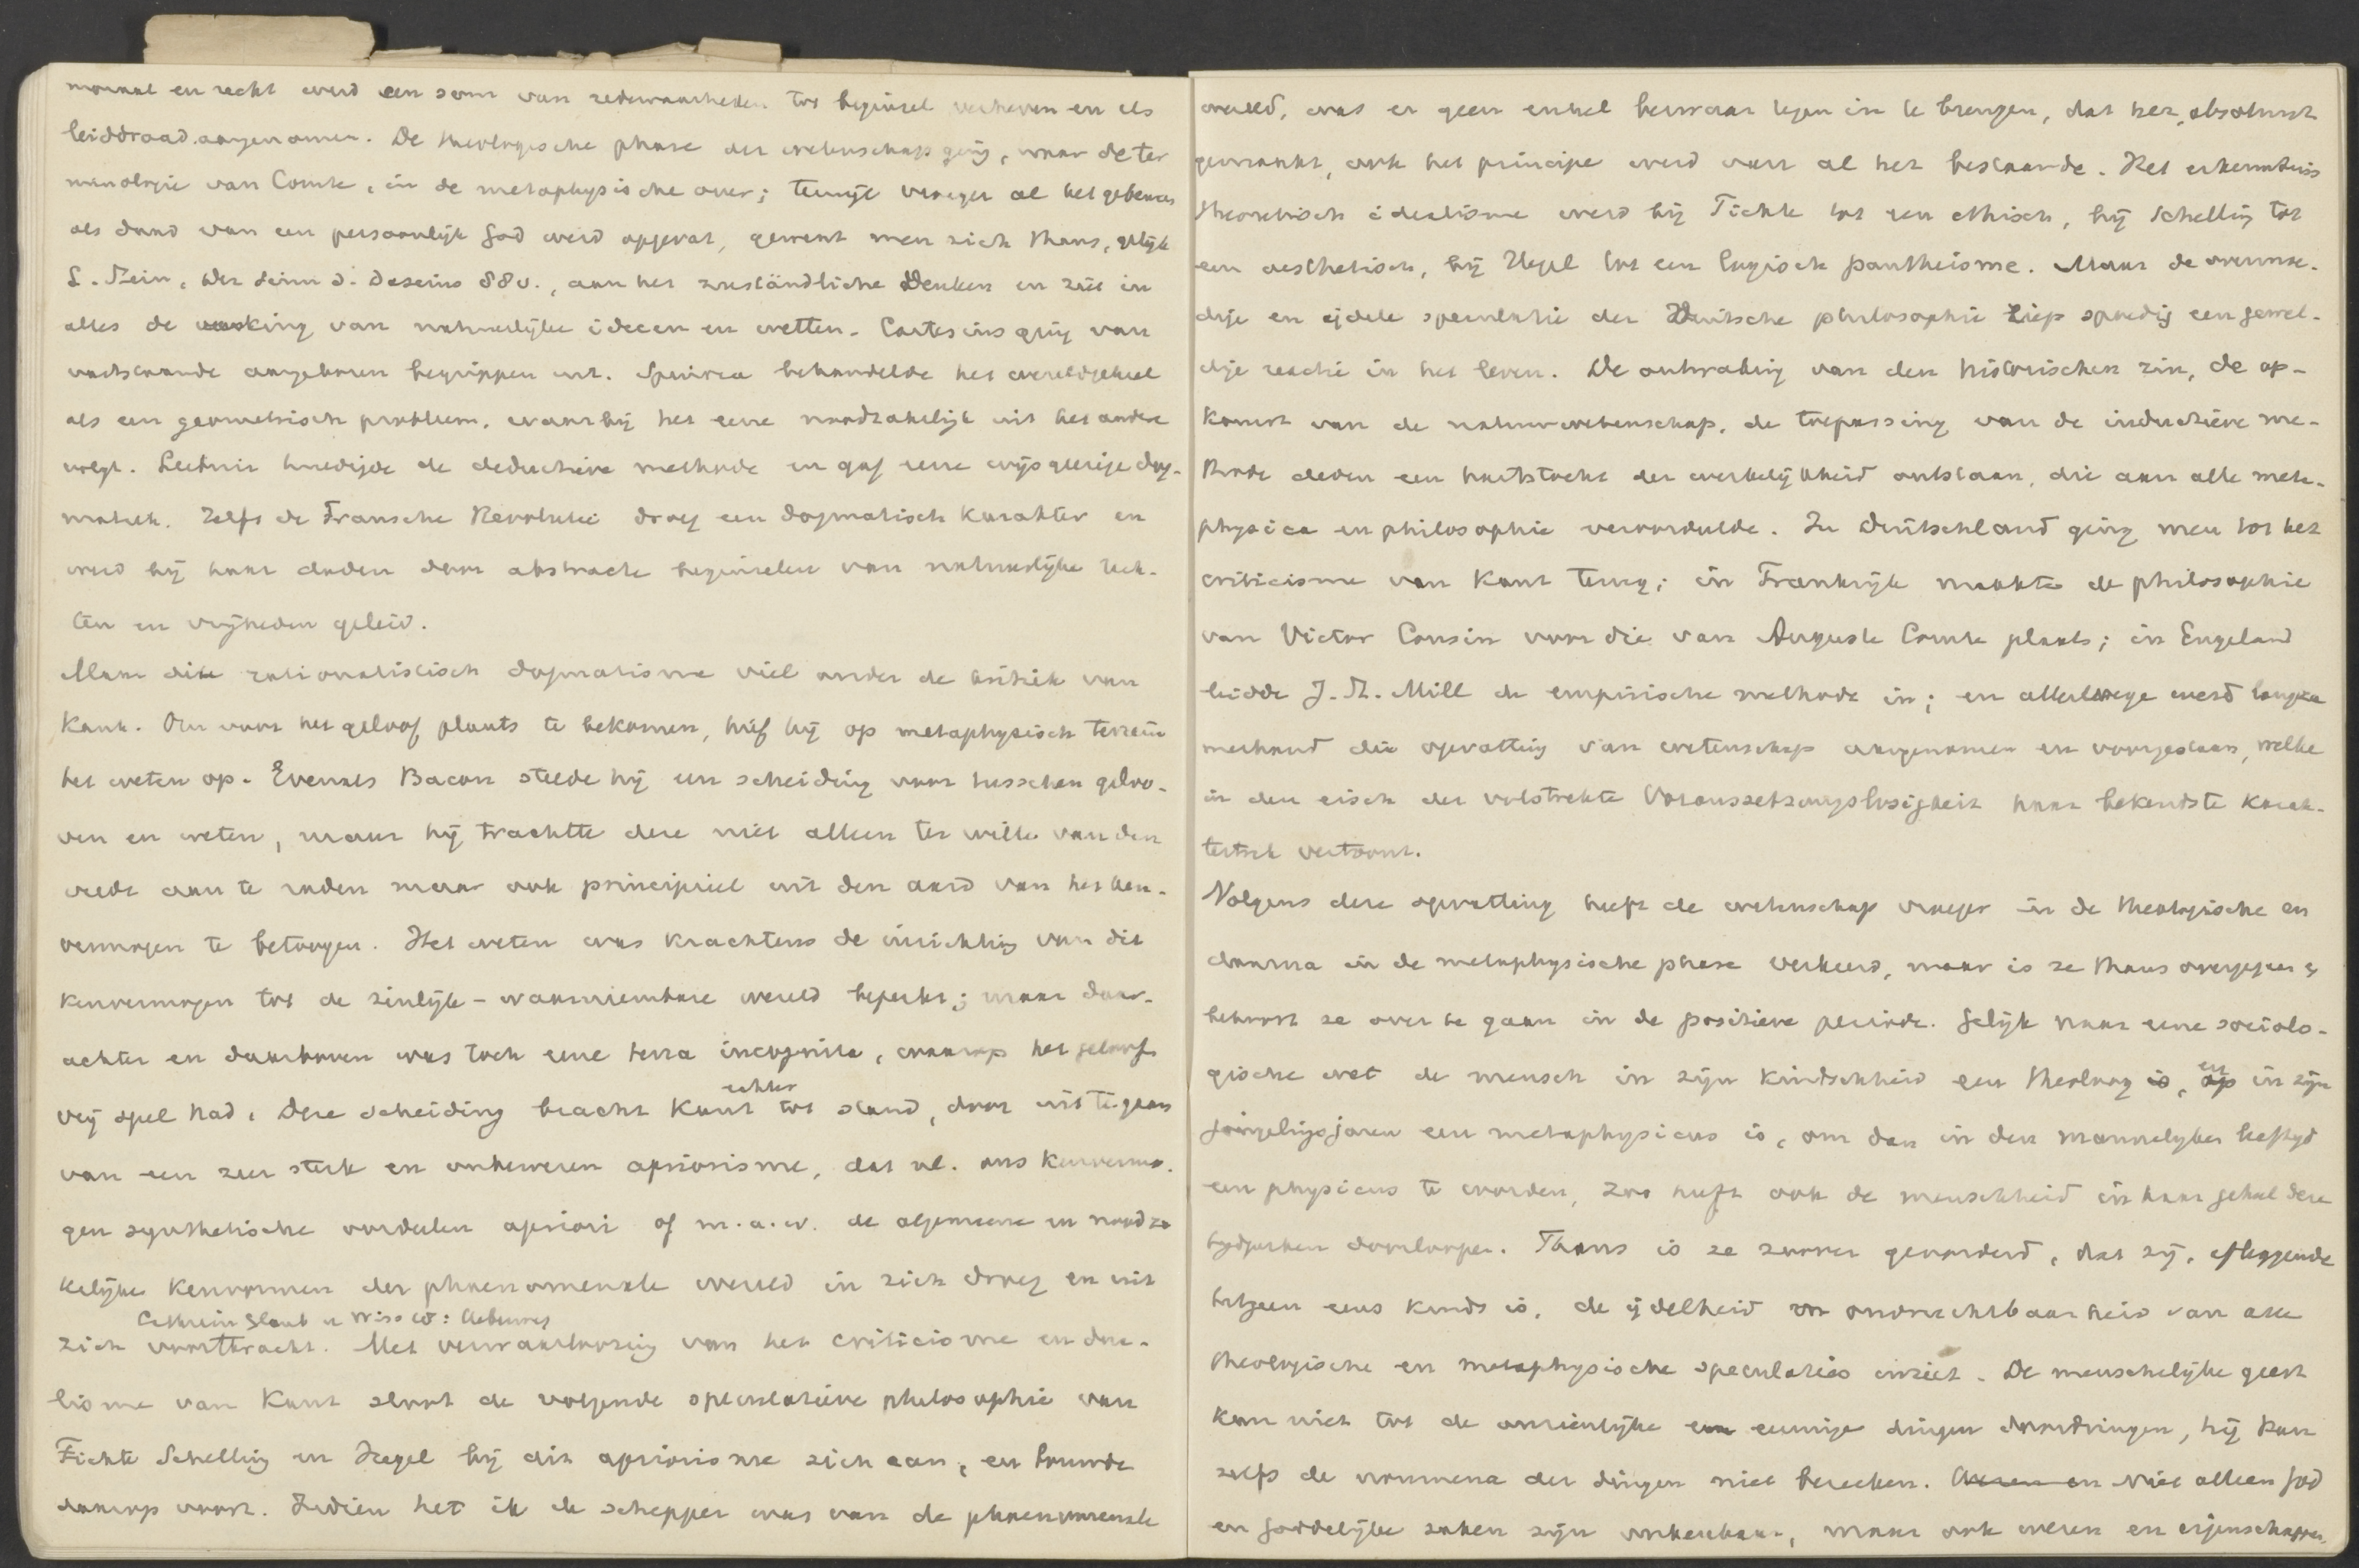 moraal en recht werd een som van redewaarheden tot beginsel verheven en als
leiddraad aangenomen. De theologische phase der wetenschap ging, naar de ter
minologie van Comte, in de metaphysische over; terwijl vroeger al het gebeuren
als daad van een persoonlijk God werd opgevat, gewent men zich thans, gelijk
L. Stein, der Sinn d. Daseins 88v., aan het zuständliche Denken en ziet in
alles de werking van natuurlijke ideeen en wetten. Cartesius ging van
vaststaande aangeboren begrippen uit. Spinoza behandelde het wereldgeheel
als een geometrisch probleem, waarbij het eene noodzakelijk uit het andere
volgt. Leibniz huldigde de deductieve methode en gaf eene wijsgeerige dog-
matiek. Zelfs de Fransche Revolutie droeg een dogmatisch karakter en
werd bij haar daden door abstracte beginselen van natuurlijke rech-
ten en vrijheden geleid.
Maar dit rationalistisch dogmatisme viel onder de kritiek van
Kant. Om voor het geloof plaats te bekomen, hief hij op metaphysisch terrein
het weten op. Evenals Bacon stelde hij een scheiding voor tusschen geloo-
ven en weten, maar hij trachtte deze niet alleen ter wille van den
vrede aan te raden maar ook principieel uit den aard van het ken-
vermogen te betoogen. Het weten was krachtens de inrichting van dit
kenvermogen tot de zinlijk-waarneembare wereld beperkt; maar daar-
achter en daarboven was toch eene terra incognita, waarop het geloof
vrij spel had. Deze scheiding bracht Kant echter tot stand, door uit te gaan
van een zeer sterk en onbewezen apriorisme, dat nl. ons kenvermo-
gen synthetische oordeelen apriori of m.a.w. de algemeene en noodza
kelijke kenvormen der phaenomenale wereld in zich droeg en uit
Cathrein Glaub u Wiss
zich voortbracht. Met verwaarloozing van het criticisme en dua-
lisme van Kant sloot de volgende speculatieve philosophie van
Fichte Schelling en Hegel bij dit apriorisme zich aan, en bouwde
daarop voort. Indien het ik de schepper was van de phaenomenale
wereld, was er geen enkel bezwaar tegen in te brengen, dat het, absoluut
gemaakt, ook het principe werd van al het bestaande. Het erkenntniss
theoretisch idealisme werd bij Fichte tot een ethisch, bij Schelling tot
een aesthetisch, bij Hegel tot een logisch pantheisme. Maar de overmoe-
dige en ijdele speculatie der Duitsche philosophie riep spoedig een gewel-
dige reactie in het leven. De ontwaking van den historischen zin, de op-
komst van de natuurwetenschap, de toepassing van de inductieve me-
thode deden een hartstocht der werkelijkheid ontstaan, die aan alle meta-
physica en philosophie veroordeelde. In Duitschland ging men tot het
criticisme van Kant terug; in Frankrijk maakte de philosophie
van Victor Cousin voor die van Auguste Comte plaats; in Engeland
leidde J. St. Mill de empirische methode in; en allerwege werd langza
merhand die opvatting van wetenschap aangenomen en voorgestaan, welke
in den eisch der volstrekte Voraussetzungslosigkeit haar bekendste karak-
tertrek vertoont.
Volgens deze opvatting heeft de wetenschap vroeger in de theologische en
daarna in de metaphysische phase verkeerd, maar is ze thans overgegaan of
behoort ze over te gaan in de positieve periode. Gelijk naar eene sociolo-
gische wet de mensch in zijn kindschheid een theoloog is, en in zijn
jongelingsjaren een metaphysicus is, om dan in den mannelijken leeftijd
een physicus te worden, zoo heeft ook de menschheid in haar geheel deze
tijdperken doorloopen. Thans is ze zoover gevorderd, dat zij, afleggende
hetgeen eens kinds is, de ijdelheid en onvruchtbaarheid van alle
theologische en metaphysische speculaties inziet. De menschelijke geest
kan niet tot de onzienlijke en eeuwige dingen doordringen, hij kan
zelfs de noumena der dingen niet bereiken. Niet alleen God
en goddelijke zaken zijn onkenbaar, maar ook wezen en eigenschappen